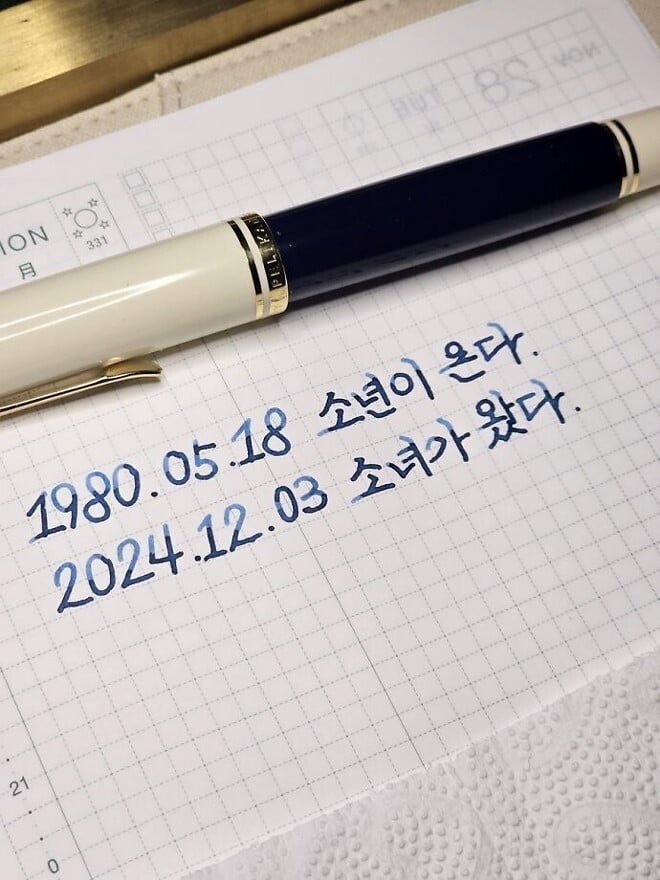 NOV
28
TUE
ION
月
331
PELIKAN
1980.05.18 소년이 온다.
2024.12.03 소녀가 왔다.
21
0